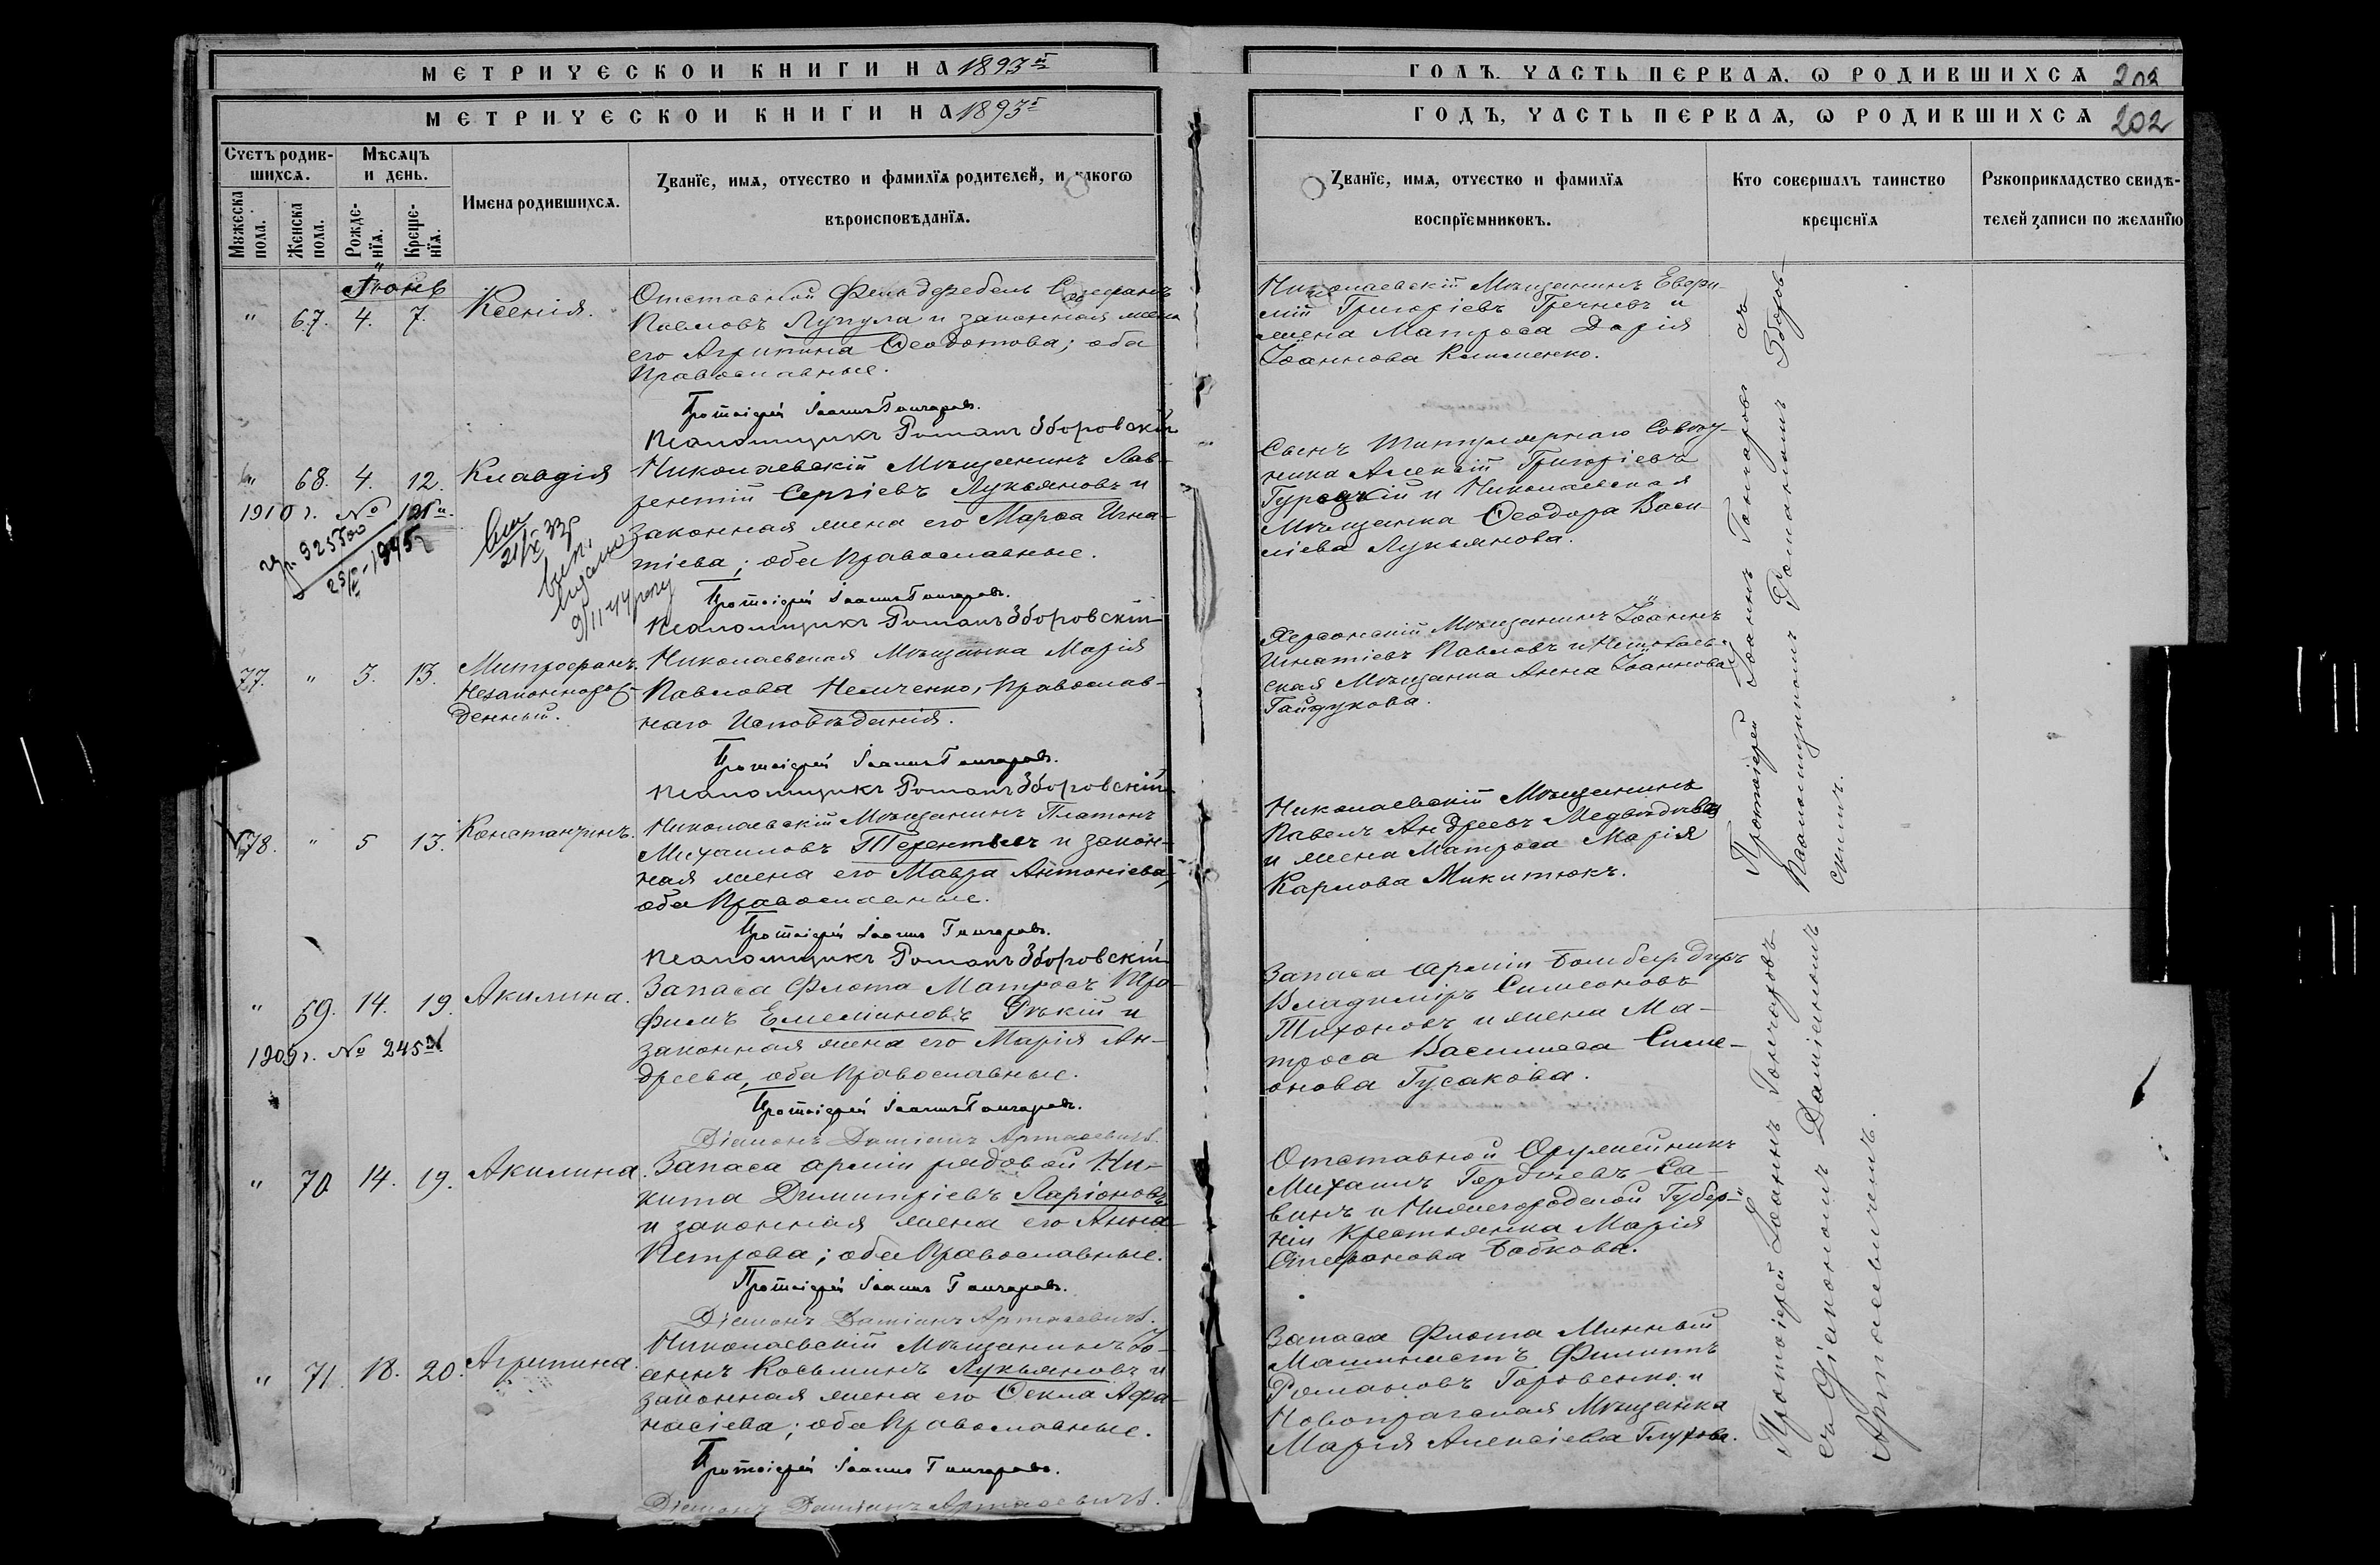 МЕТРИЧЕСКОЙ КНИГИ НА 1893й
ГОДЪ, ЧАСТЬ ПЕРВАѦ, Ѡ РОДИВШИХСѦ 203
МЕТРИЧЕСКОЙ КНИГИ НА 1893й
ГОДЪ, ЧАСТЬ ПЕРВАѦ, Ѡ РОДИВШИХСѦ 202
Счетъ родив-
шихсѧ.
Мѣсѧцъ
и день.
Мꙋжеска
пола.
Женска
пола.
Рожде-
нїѧ.
Креще-
нїѧ.
Имена родившихсѧ.
Званїе, имѧ, отчество и фамилїѧ родителей, и какогѡ
вѣроисповѣданїѧ.
Званїе, имѧ, отчество и фамилїѧ
воспрїемниковъ.
Кто совершалъ таинство
крещенїѧ
Рꙋкоприкладство свидѣ-
телей записи по желанїю
Іюнь
" 67. 4. 7. Ксенія.
Отставной Фельдфебель Стефанъ
Павловъ Лупула и законная жена
его Агрипина Ѳеодотова; оба
Православные.
Протоіерей Іоаннъ Гончаровъ.
Псаломщикъ Романъ Зборовскій
Николаевскій Мѣщанинъ Евѳи-
мій Григоріевъ Гречневъ и
жена Матроса Дарія
Іоаннова Клименко.
" 68. 4. 12. Клавдія
1910 г. №
25/II-1945
Николаевскій Мѣщанинъ Лав-
рентій Сергіевъ Лукьяновъ и
законная жена его Марѳа Игна-
тіева; оба Православные.
Протоіерей Іоаннъ Гончаровъ.
Псаломщикъ Романъ Зборовскій
Сынъ Титулярнаго Совѣт-
ника Алексій Григоріевъ
Турскій и Николаевская
Мѣщанка Ѳеодора Васи-
ліева Лукьянова.
77. " 3. 13. Митрофанъ.
Незаконнорож-
денный.
Николаевская Мѣщанка Марія
Павлова Немченко, Православ-
наго Исповѣданія.
Протоіерей Іоаннъ Гончаровъ.
Псаломщикъ Романъ Зборовскій
Херсонскій Мѣщанинъ Іоаннъ
Игнатіевъ Павловъ и Николаев-
ская Мѣщанка Анна Іоаннова
Гайдукова.
78. " 5 13. Константинъ.
Николаевскій Мѣщанинъ Платонъ
Михаиловъ Терентьевъ и закон-
ная жена его Мавра Антоніева,
оба Православные.
Протоіерей Іоаннъ Гончаровъ.
Псаломщикъ Романъ Зборовскій
Николаевскій Мѣщанинъ
Павелъ Андреевъ Медвѣдевъ
и жена Матроса Марія
Карпова Микитюкъ.
Протоіерей Іоаннъ Гончаровъ съ
Псаломщикомъ Романомъ Зборов-
скимъ.
" 69. 14. 19. Акилина.
1909 г. № 245й
Запаса Флота Матросъ Тро-
фимъ Емеліановъ Рѣкій и
законная жена его Марія Ан-
дреева, оба Православные.
Протоіерей Іоаннъ Гончаровъ.
Діаконъ Даміанъ Артасевичъ.
Запаса арміи Бомбардиръ
Владиміръ Симеоновъ
Тихоновъ и жена Ма-
троса Василисса Симе-
онова Гусакова.
" 70 14. 19. Акилина.
Запаса арміи рядовой Ни-
кита Димитріевъ Ларіоновъ
и законная жена его Анна
Петрова; оба Православные.
Протоіерей Іоаннъ Гончаровъ.
Діаконъ Даміанъ Артасевичъ.
Отставной Оружейникъ
Михаилъ Гордѣевъ Са-
винъ и Нижегородской Губер-
ніи Крестьянка Марія
Стефанова Бобкова.
" 71. 18. 20. Агрипина.
Николаевскій Мѣщанинъ Іо-
аннъ Косьминъ Лукьяновъ и
законная жена его Ѳекла Аѳа-
насіева; оба Православные.
Протоіерей Іоаннъ Гончаровъ.
Діаконъ Даміанъ Артасевичъ.
Запаса Флота Минный
Машинистъ Филиппъ
Романовъ Горовенко и
Новопрагская Мѣщанка
Марія Алексіева Глухова.
Протоіерей Іоаннъ Гончаровъ
съ Діакономъ Даміаномъ
Артасевичемъ.